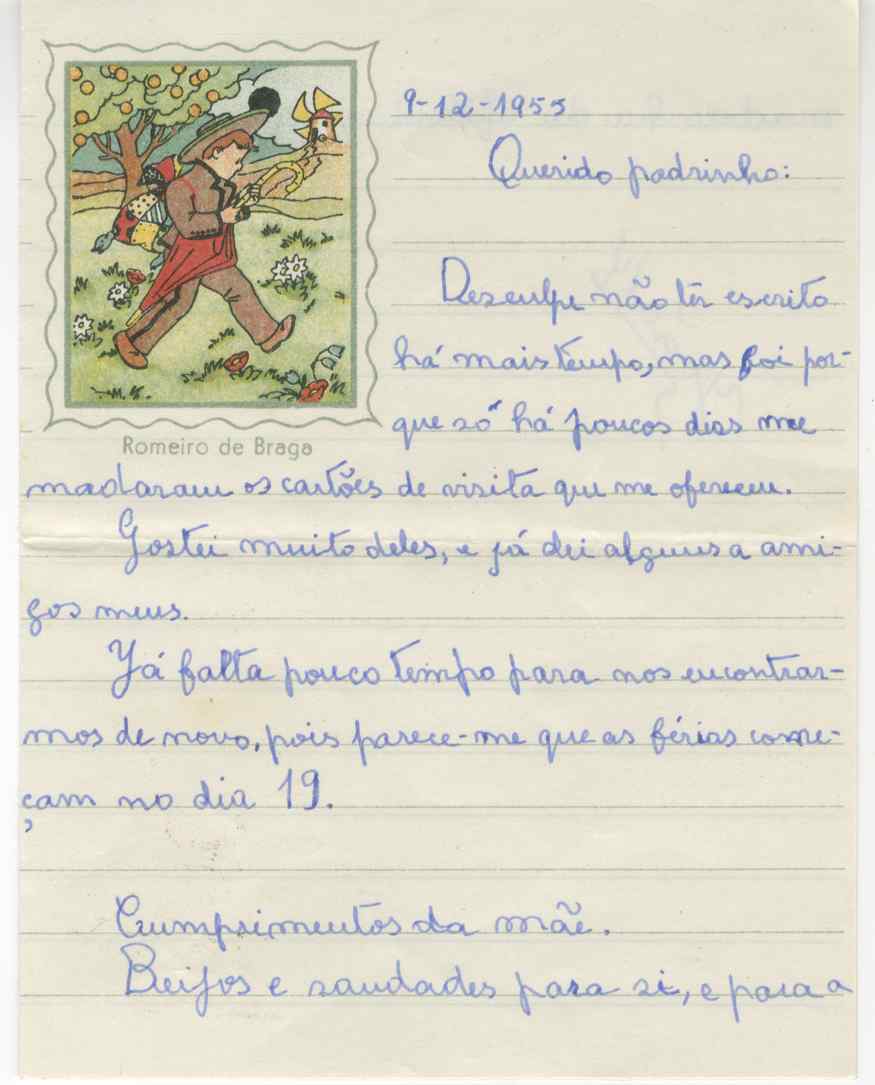 9-12-1955
Querido padrinho:
Desculpe não têr escrito
há mais tempo, mas foi por-
que só há poucos dias me
madaram os cartões de visita que me ofereceu.
Gostei muito deles, e já dei alguns a ami-
gos meus.
Já falta pouco tempo para nos encontrar-
mos de novo, pois parece-me que as férias come-
çam no dia 19.
Cumprimentos da mãe.
Beijos e saudades para si, e para a
Romeiro de Braga